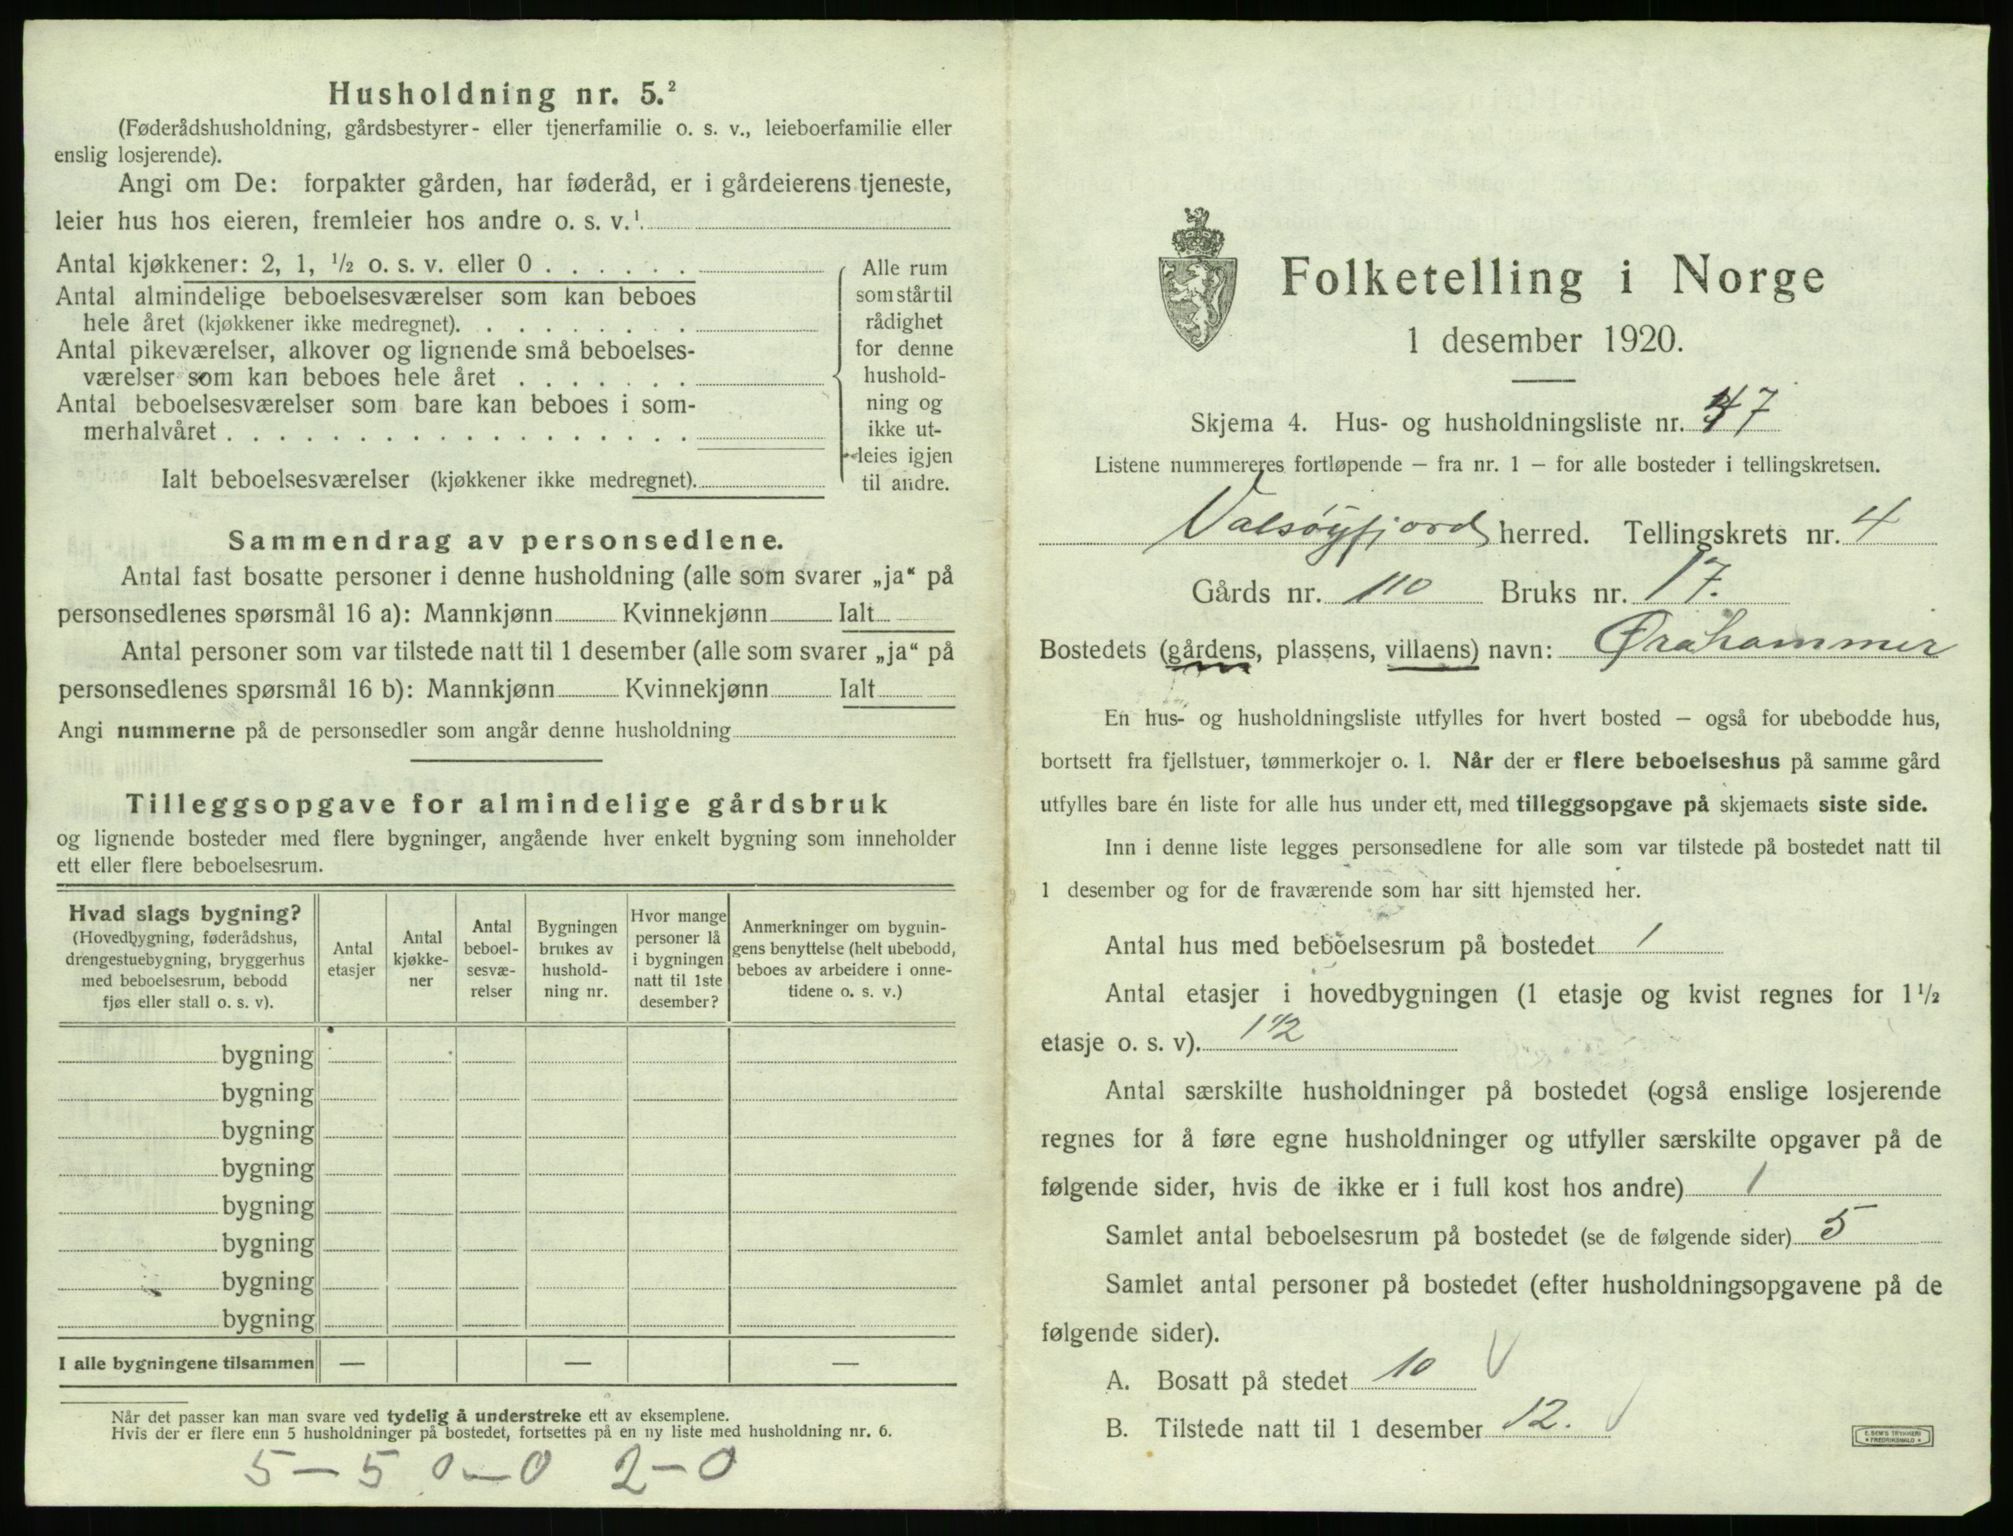 Husholdning nr. 5.²
(Føderådshusholdning, gårdsbestyrer- eller tjenerfamilie o. s. v., leieboerfamilie eller
enslig losjerende).
Angi om De: forpakter gården, har føderåd, er i gårdeierens tjeneste,
leier hus hos eieren, fremleier hos andre o. s. v.¹
Antal kjøkkener: 2, 1, ½ o. s. v. eller 0 . . . . . .
Antal almindelige beboelsesværelser som kan beboes
hele året (kjøkkener ikke medregnet). . . . . . . . .
Antal pikeværelser, alkover og lignende små beboelses-
værelser som kan beboes hele året . . . . . . .
Antal beboelsesværelser som bare kan beboes i som-
merhalvåret . . . . . . . . . . . . . . . . . .
Ialt beboelsesværelser (kjøkkener ikke medregnet).
Alle rum
som står til
rådighet
for denne
hushold-
ning og
ikke ut-
leies igjen
til andre.
Sammendrag av personsedlene.
Antal fast bosatte personer i denne husholdning (alle som svarer „ja“ på
personsedlenes spørsmål 16 a): Mannkjønn Kvinnekjønn Ialt
Antal personer som var tilstede natt til 1 desember (alle som svarer „ja“ på
personsedlenes spørsmål 16 b): Mannkjønn Kvinnekjønn Ialt
Angi nummerne på de personsedler som angår denne husholdning
Tilleggsopgave for almindelige gårdsbruk
og lignende bosteder med flere bygninger, angående hver enkelt bygning som inneholder
ett eller flere beboelsesrum.
Hvad slags bygning?
(Hovedbygning, føderådshus,
drengestuebygning, bryggerhus
med beboelsesrum, bebodd
fjøs eller stall o. s. v).
Antal
etasjer
Antal
kjøkke-
ner
Antal
beboel-
sesvæ-
relser
Bygningen
brukes av
hushold-
ning nr.
Hvor mange
personer lå
i bygningen
natt til 1ste
desember?
Anmerkninger om bygnin-
gens benyttelse (helt ubebodd,
beboes av arbeidere i onne-
tidene o. s. v.)
bygning
bygning
bygning
bygning
bygning
bygning
bygning
bygning
I alle bygningene tilsammen — — —
Når det passer kan man svare ved tydelig å understreke ett av eksemplene.
Hvis der er flere enn 5 husholdninger på bostedet, fortsettes på en ny liste med husholdning nr. 6.
5 — 5 0 — 0 2 — 0
Folketelling i Norge
1 desember 1920.
Skjema 4. Hus- og husholdningsliste nr. 47
Listene nummereres fortløpende — fra nr. 1 — for alle bosteder i tellingskretsen.
Valsøyfjord herred. Tellingskrets nr. 4
Gårds nr. 110 Bruks nr. 17.
Bostedets (gårdens, plassens, villaens) navn: Ørahammer
En hus- og husholdningsliste utfylles for hvert bosted — også for ubebodde hus,
bortsett fra fjellstuer, tømmerkojer o. l. Når der er flere beboelseshus på samme gård
utfylles bare én liste for alle hus under ett, med tilleggsopgave på skjemaets siste side.
Inn i denne liste legges personsedlene for alle som var tilstede på bostedet natt til
1 desember og for de fraværende som har sitt hjemsted her.
Antal hus med beboelsesrum på bostedet 1
Antal etasjer i hovedbygningen (1 etasje og kvist regnes for 1½
etasje o. s. v). 1 ½
Antal særskilte husholdninger på bostedet (også enslige losjerende
regnes for å føre egne husholdninger og utfyller særskilte opgaver på de
følgende sider, hvis de ikke er i full kost hos andre) 1
Samlet antal beboelsesrum på bostedet (se de følgende sider) 5
Samlet antal personer på bostedet (efter husholdningsopgavene på de
følgende sider).
A. Bosatt på stedet 10
B. Tilstede natt til 1 desember 12.
E. SEM'S TRYKKERI
FREDRIKSHALD